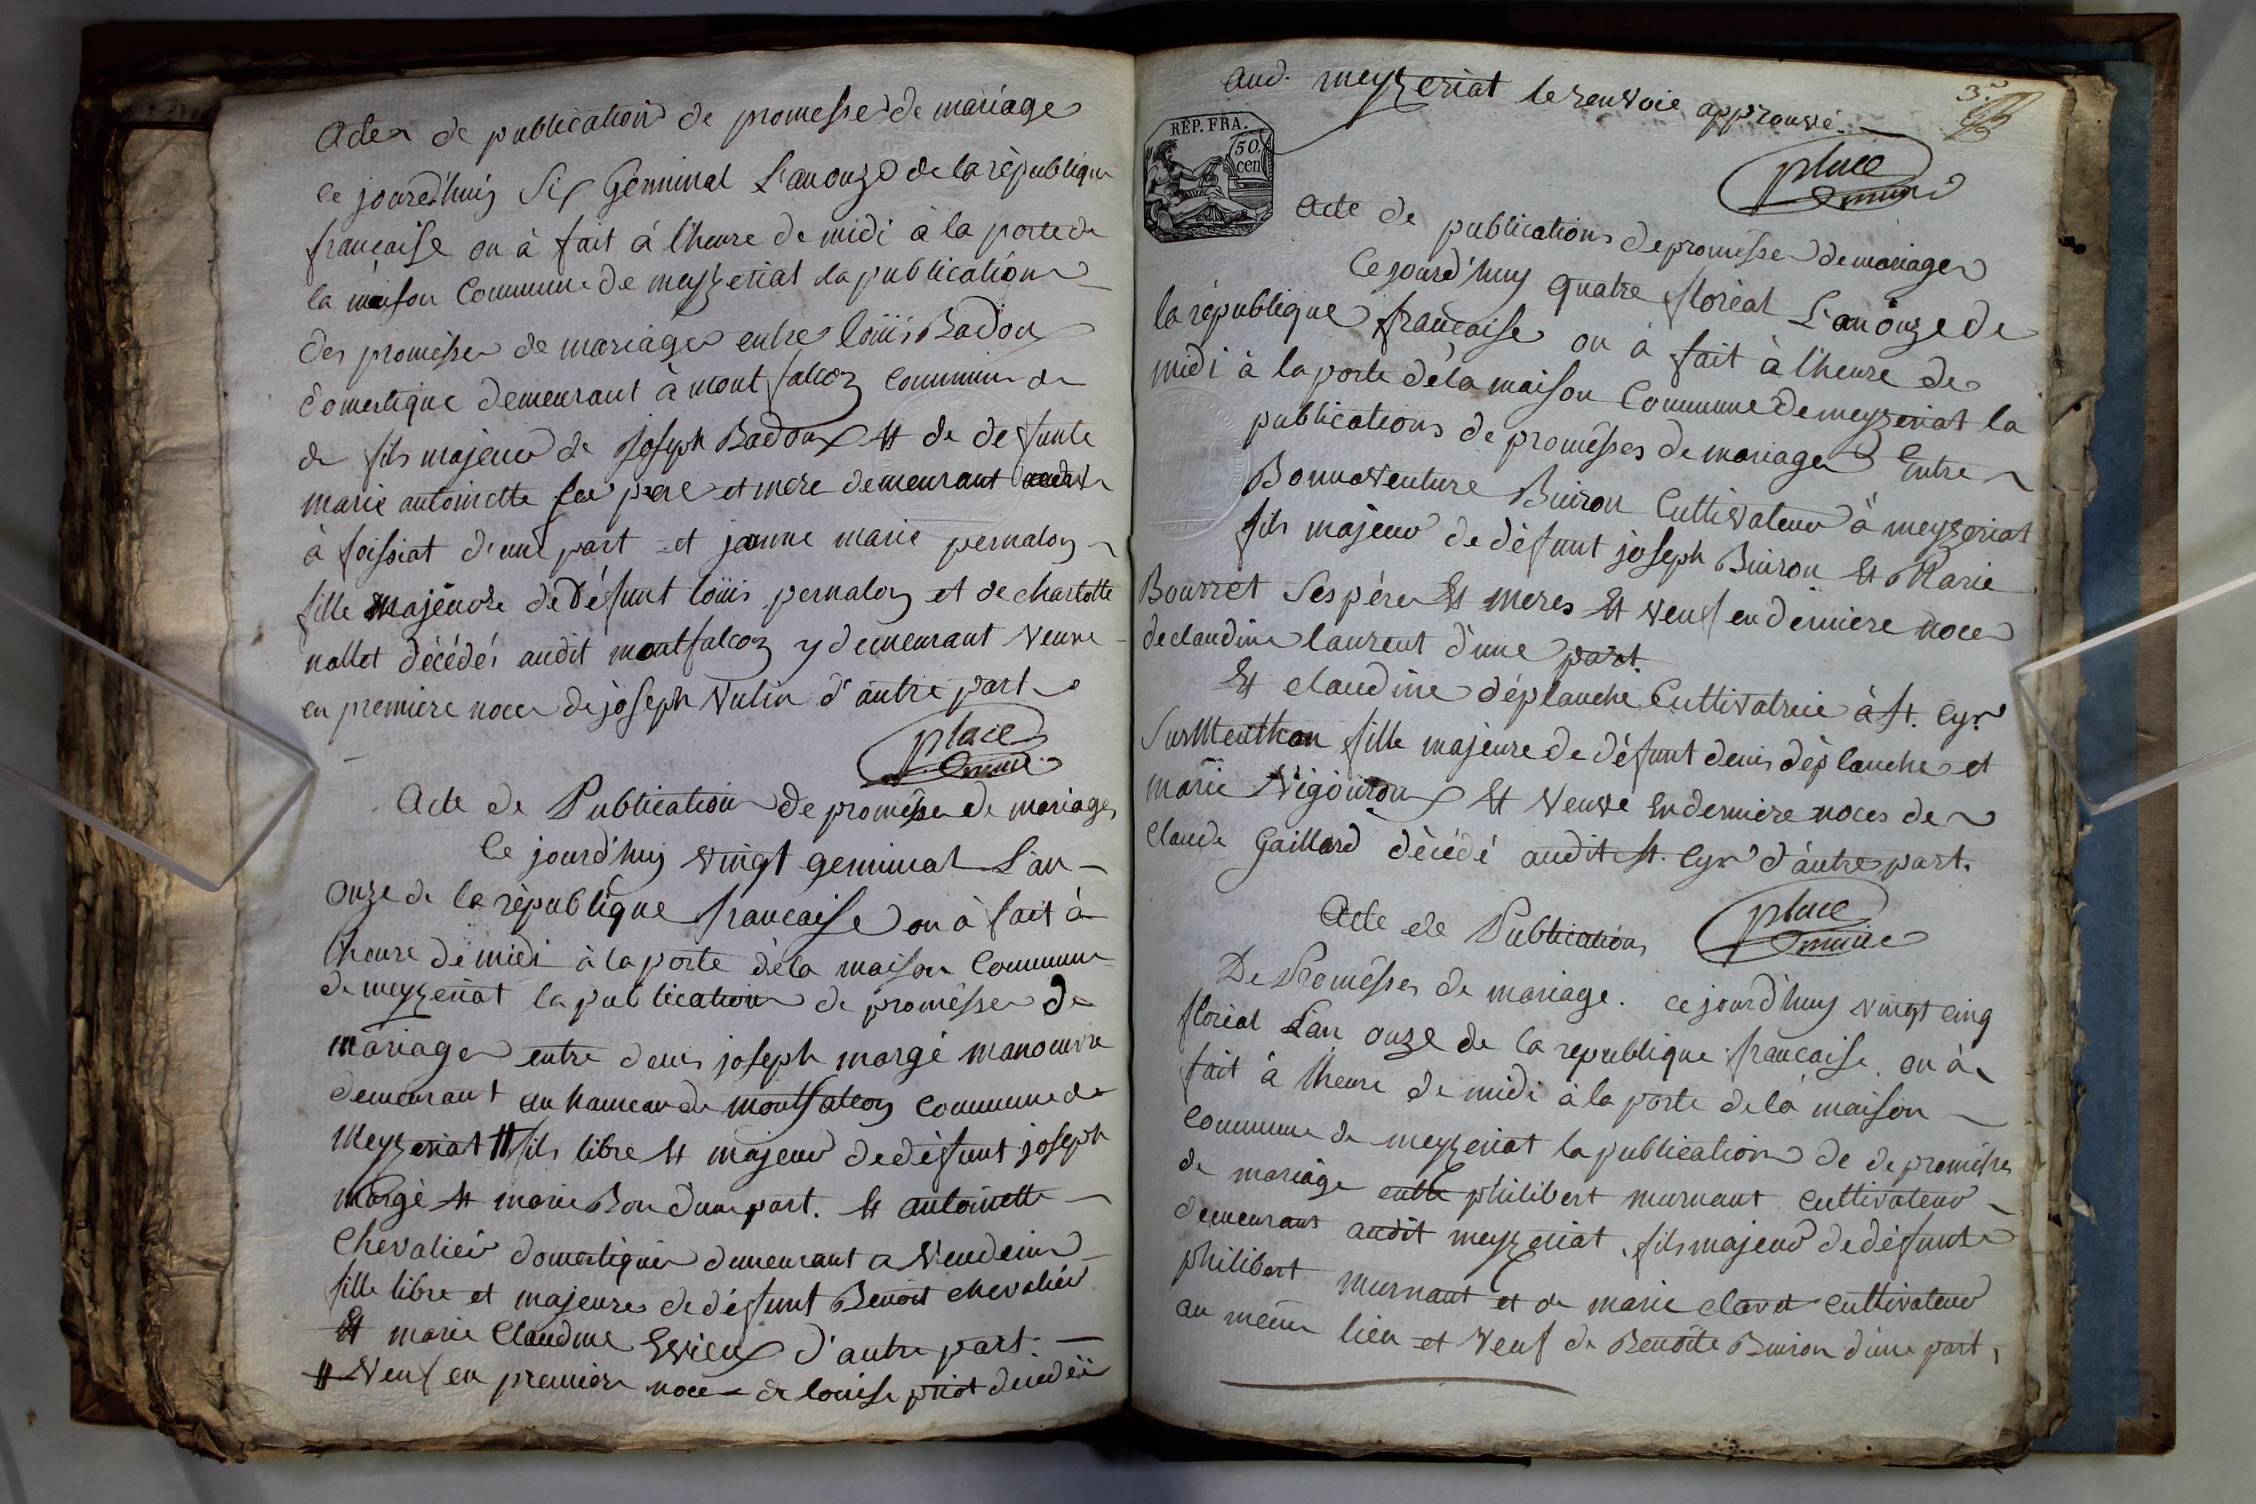 Actes de publication de promesse de mariage
ce jourd'huy six Germinal L'an onze de la république
française on à fait à l'heure de midi à la porte de
la maison Commune de meyzeriat la publication
des promesses de mariages entre loüis Badoux
domestique demeurant à montfalcoz Commune de
de fils majeur de Joseph Badoux Et de defunte
marie antoinette père et mere demeurant
à foissiat d'une part et jeanne marie pernaloz
fille majeure de Défunt loüis pernaloz et de charlotte
nallet décédés audit montfalcoz y demeurant veuve
en premiere noces de joseph vulin d'autre part
place
maire
Acte de Publication de promesse de mariages
Ce jourd'huy vingt germinal L'an
onze de la république francaise on à fait à
l'heure de midi à la porte dela maison Commune
de meyzeriat la publication de promesses de
mariages entre denis joseph margé manoeuvre
demeurant au hameau de montfalcoz commune de
Meyzeriat # fils libre Et majeur de défunt joseph
margé Et marie Bon d'une part. Et antoinette
Chevalier domestique demeurant a vendeins
fille libre et majeure de défunt Benoit chevalier
Et marie Claudine Evieux d'autre part.
# Veuf en premiere noces de louise priot décédée
aud. meyzeriat le renvoie approuvé.
3.e
RÉP. FRA.
50
cen
place
maire
Acte de publications de promesse de mariages
Ce jourd'huy quatre floréal L'an onze de
la république française on à fait à l'heure de
midi à la porte dela maison Commune de meyzeriat la
publications de promesses de mariages Entre
Bonnaventure Buiron Cultivateur à meyzeriat
fils majeur de défunt joseph Buiron Et Marie
Bourret Ses pére Et meres Et veuf en derniere noces
de claudine laurent d'une part.
Et claudine déplanche Cultivatrice à St. Cyr
Sur Menthon fille majeure de défunt denis déplanche et
marie Vigouroux Et veuve En derniere noces de
Claude Gaillard décédé audit St. Cyr d'autre part.
place
maire
Acte de Publication
De Promesses de mariage. ce jourd'huy vingt cinq
floréal L'an onze de la republique francaise. on à
fait à l'heure de midi à la porte dela maison
commune de meyzeriat la publication de de promesses
de mariage entre philibert murnant cultivateur
demeurant audit meyzeriat, fils majeur de défunt
philibert murnant et de marie clavet cultivateur
au même lieu et veuf de Benoîte Buiron d'une part,